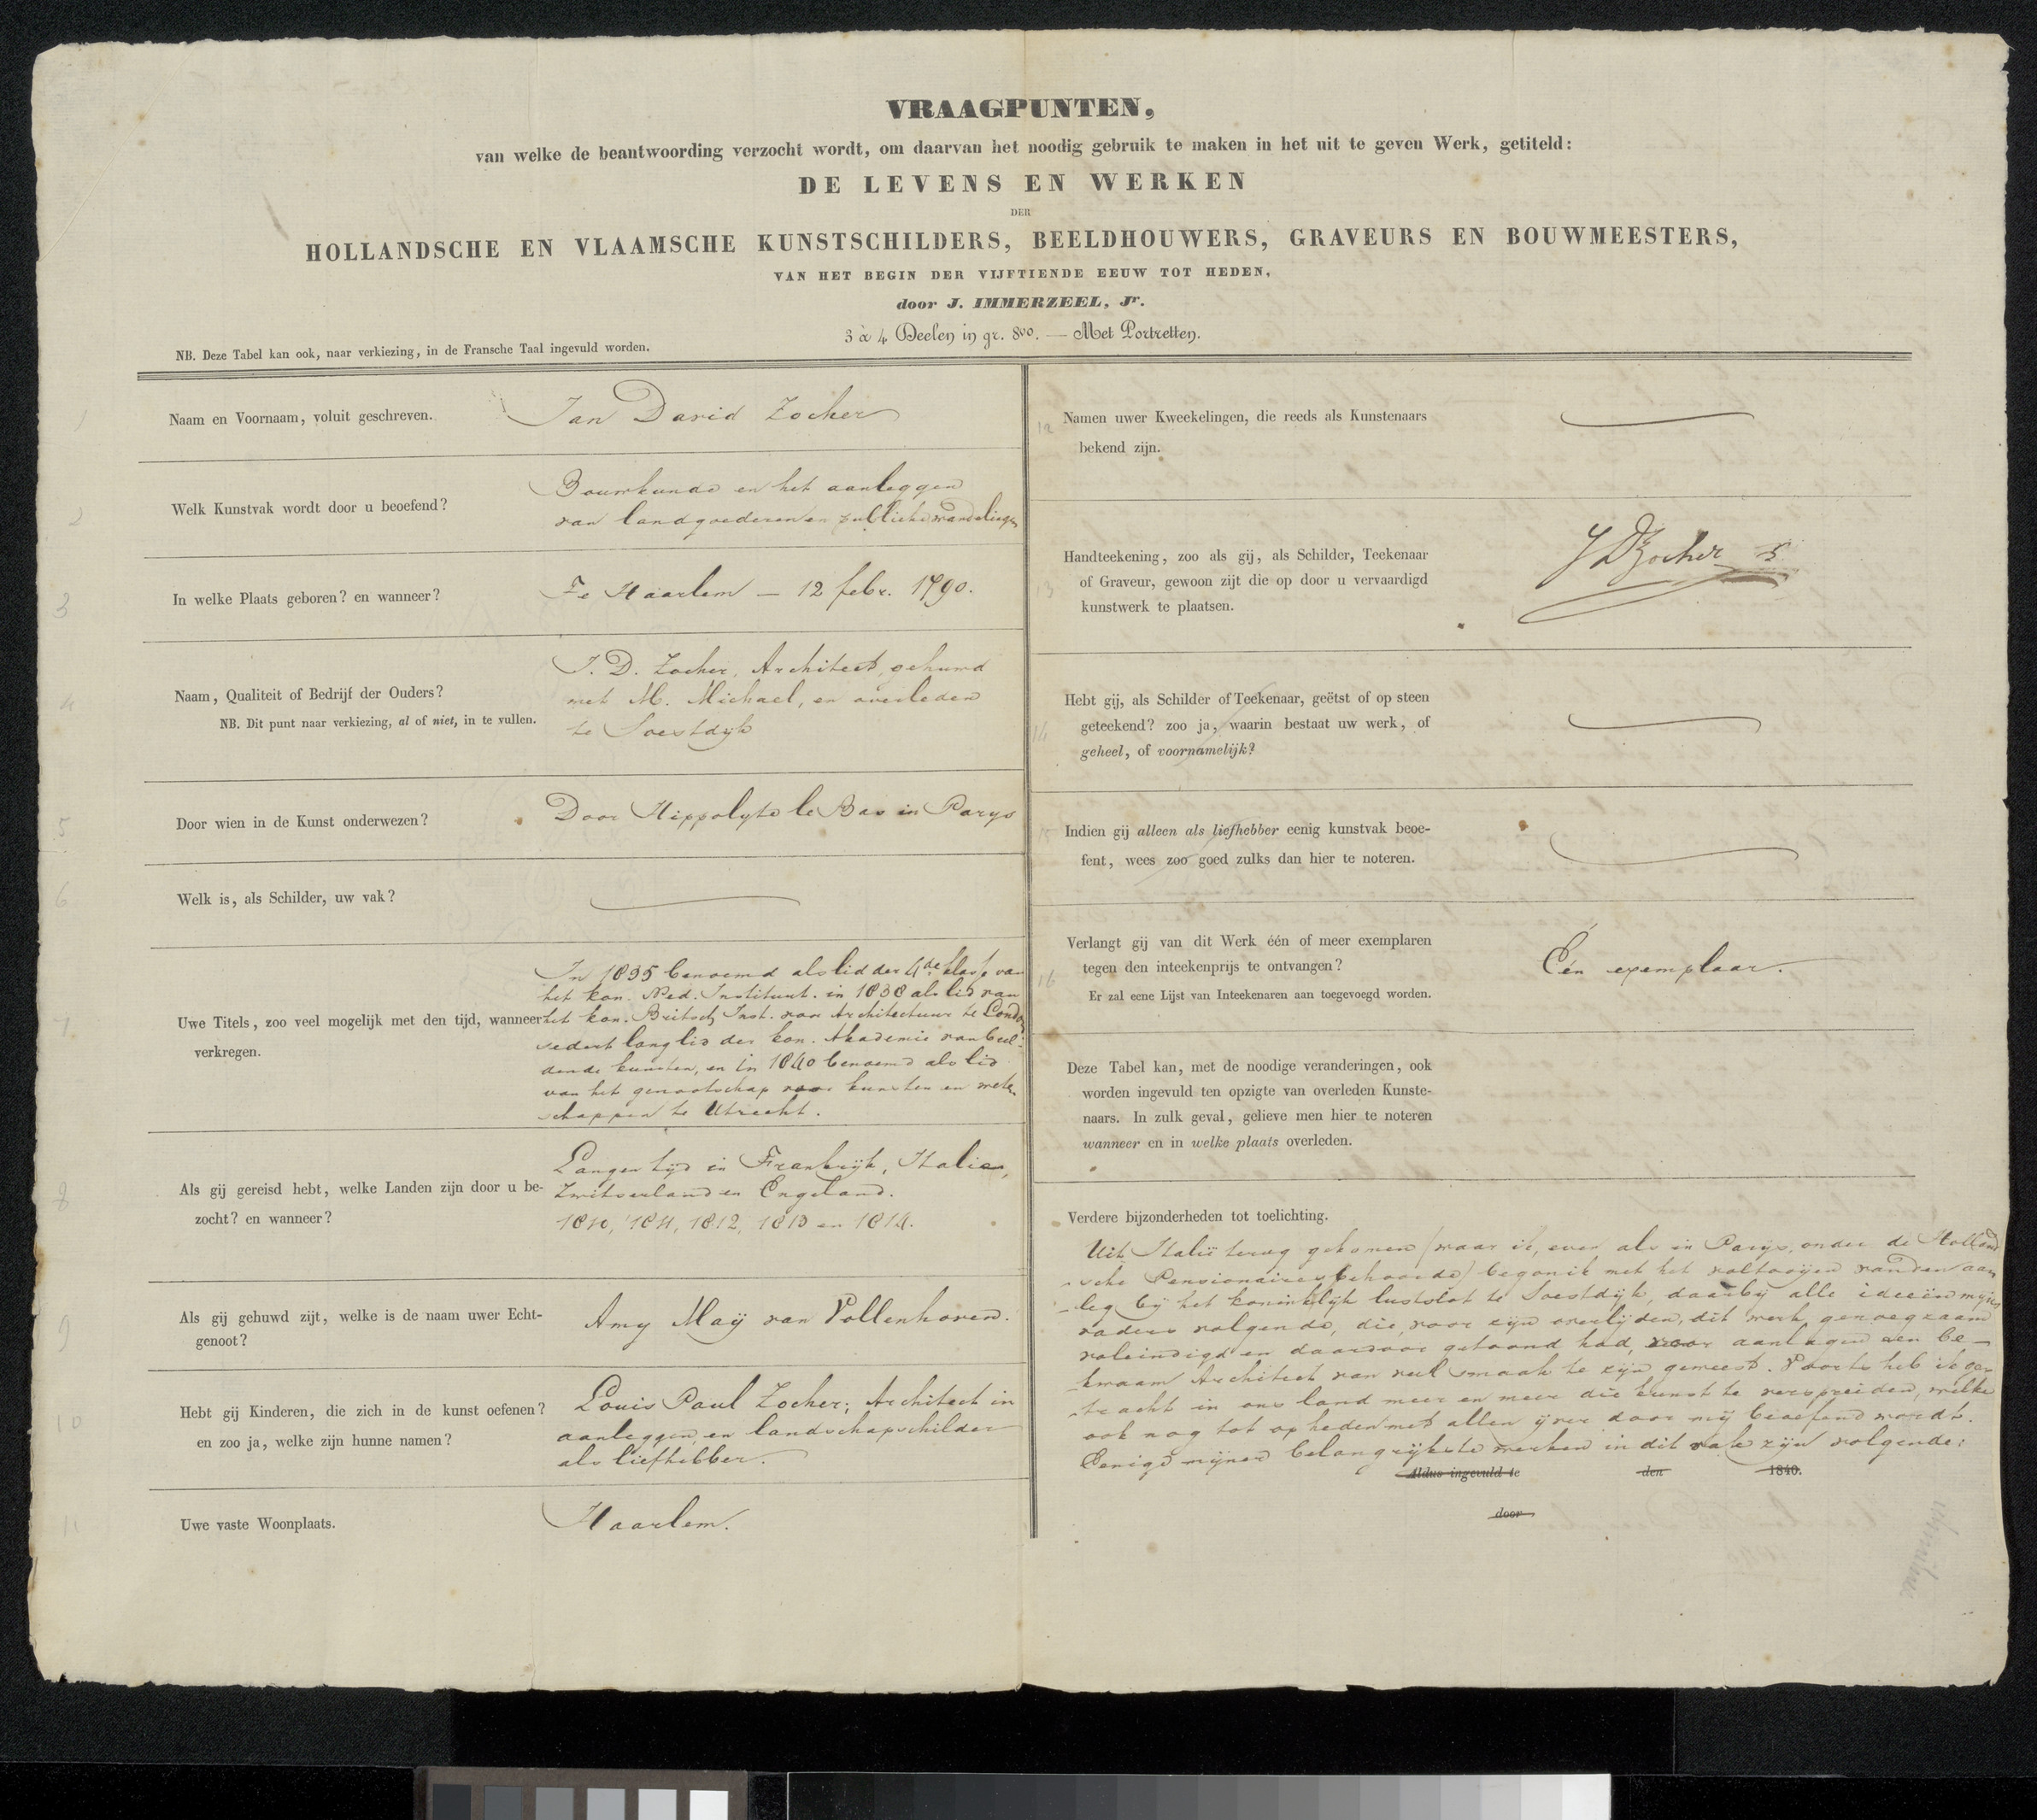 VRAAGPUNTEN,
van welke de beantwoording verzocht wordt, om daarvan het noodig gebruik te maken in het uit te geven Werk, getiteld:
DE LEVENS EN WERKEN
DER
HOLLANDSCHE EN VLAAMSCHE KUNSTSCHILDERS, BEELDHOUWERS, GRAVEURS EN BOUWMEESTERS,
VAN HET BEGIN DER VIJFTIENDE EEUW TOT HEDEN,
door J. IMMERZEEL, Jr.
3 à 4 Deelen in gr. 8vo. — Met Portretten.
NB. Deze Tabel kan ook, naar verkiezing, in de Fransche Taal ingevuld worden.
1
Naam en Voornaam, voluit geschreven.
Jan David Zocher
2
Welk Kunstvak wordt door u beoefend?
Bouwkunde en het aanleggen
van landgoederen en publieke wandelingen
3
In welke Plaats geboren? en wanneer?
Te Haarlem – 12 febr. 1790.
4
Naam, Qualiteit of Bedrijf der Ouders?
NB. Dit punt naar verkiezing, al of niet, in te vullen.
J. D. Zocher, Architect, gehuwd
met M. Michael, en overleden
te Soestdijk
5
Door wien in de Kunst onderwezen?
Door Hippolyte le Bas in Parys
6
Welk is, als Schilder, uw vak?
7
Uwe Titels, zoo veel mogelijk met den tijd, wanneer
verkregen.
In 1835 benoemd als lid der 4de klasse van
het kon. Ned. Instituut. in 1838 als lid van
het kon. Britsch Inst. voor Architectuur te London
sedert lang lid der kon. Akademie van beel-
dende kunsten, en in 1840 benoemd als lid
van het genootschap voor kunsten en weten
schappen te Utrecht.
8
Als gij gereisd hebt, welke Landen zijn door u be-
zocht? en wanneer?
Langen tijd in Frankrijk, Italien,
Zwitserland en Engeland.
1810, 1811, 1812, 1813 en 1814.
9
Als gij gehuwd zijt, welke is de naam uwer Echt-
genoot?
Amy Maÿ van Vollenhoven.
10
Hebt gij Kinderen, die zich in de kunst oefenen?
en zoo ja, welke zijn hunne namen?
Louis Paul Zocher; Architect in
aanleggen, en landschapschilder
als liefhebber.
11
Uwe vaste Woonplaats.
Haarlem.
12
Namen uwer Kweekelingen, die reeds als Kunstenaars
bekend zijn.
13
Handteekening, zoo als gij, als Schilder, Teekenaar
of Graveur, gewoon zijt die op door u vervaardigd
kunstwerk te plaatsen.
J D Zocher
14
Hebt gij, als Schilder of Teekenaar, geëtst of op steen
geteekend? zoo ja, waarin bestaat uw werk, of
geheel, of voornamelijk?
15
Indien gij alleen als liefhebber eenig kunstvak beoe-
fent, wees zoo goed zulks dan hier te noteren.
16
Verlangt gij van dit Werk één of meer exemplaren
tegen den inteekenprijs te ontvangen?
Er zal eene Lijst van Inteekenaren aan toegevoegd worden.
Eén exemplaar.
Deze Tabel kan, met de noodige veranderingen, ook
worden ingevuld ten opzigte van overleden Kunste-
naars. In zulk geval, gelieve men hier te noteren
wanneer en in welke plaats overleden.
Verdere bijzonderheden tot toelichting.
Uit Italië terug gekomen (waar ik, even als in Parijs, onder de Holland
-sche Pensionaires behoorde) begon ik met het voltooijen van den aan
-leg bij het koninklijk lustslot te Soestdijk, daarbij alle ideeën mijns
vaders volgende, die, voor zijn overlijden, dit werk genoegzaam
voleindigd en daardoor getoond had, voor aanleggen een be-
kwaam Architect van veel smaak te zijn geweest. Voorts heb ik ge-
tracht in ons land meer en meer die kunst te verspreiden, welke
ook nog tot op heden met allen ijver door mij beoefend wordt.
Eenige mijner belangrijkste werken in dit vak zijn volgende:
Aldus ingevuld te den 1840.
door